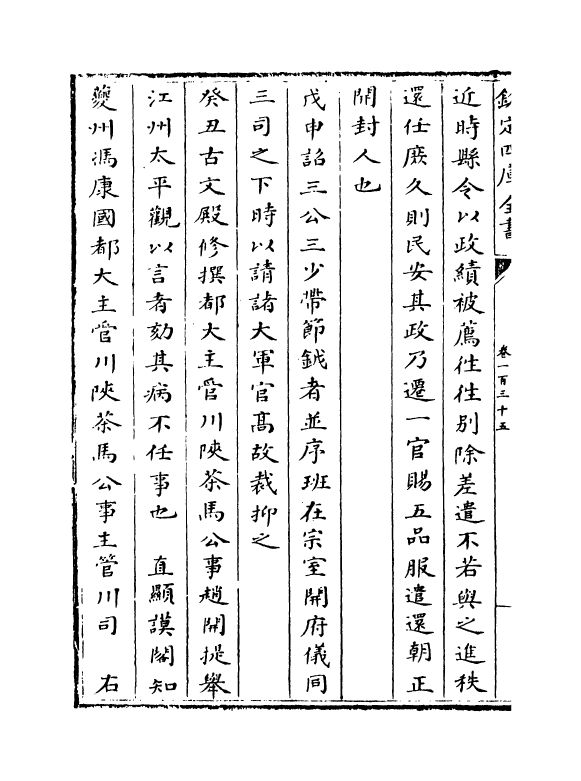 欽定四庫全書
卷一百三十五
近時縣令以政績被薦徃徃别除差遣不若與之進秩
還任厎久則民安其政乃遷一官賜五品服遣還朝正
開封人也
戊申詔三公三少帶節鉞者並序班在宗室開府儀同
三司之下時以請諸大軍官髙故裁抑之
癸丑右文殿修撰都大主管川陜茶馬公事趙開提舉
江州太平觀以言者劾其病不任事也　直顯謨閣知
夔州馮康國都大主管川陜茶馬公事主管川司　右